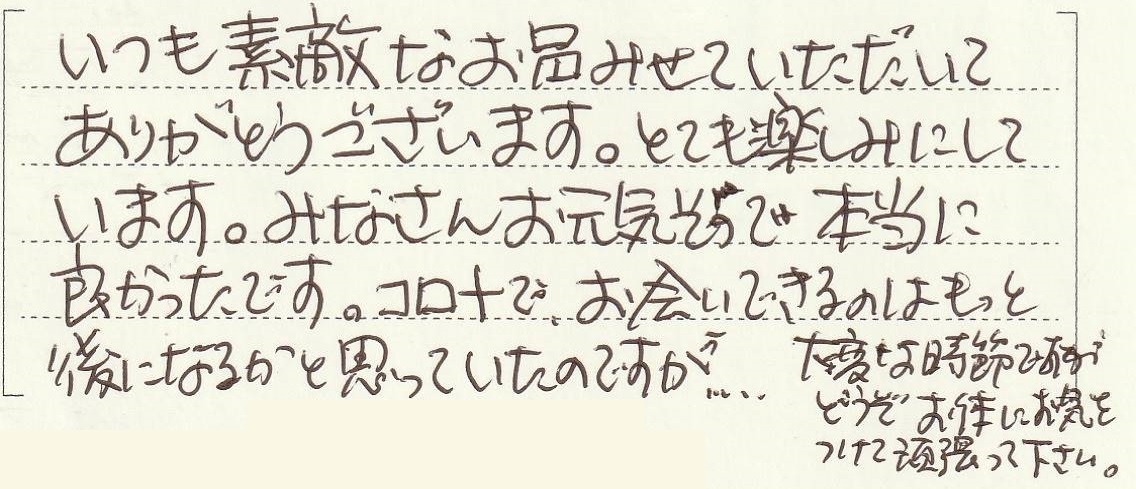 いつも素敵なお品みせていただいて
ありがとうございます。とても楽しみにして
います。みなさんお元気そうで本当に
良かったです。コロナで、お会いできるのはもっと
後になるかと思っていたのですが…
大変な時節ですが
どうぞお体にお気を
つけて頑張って下さい。